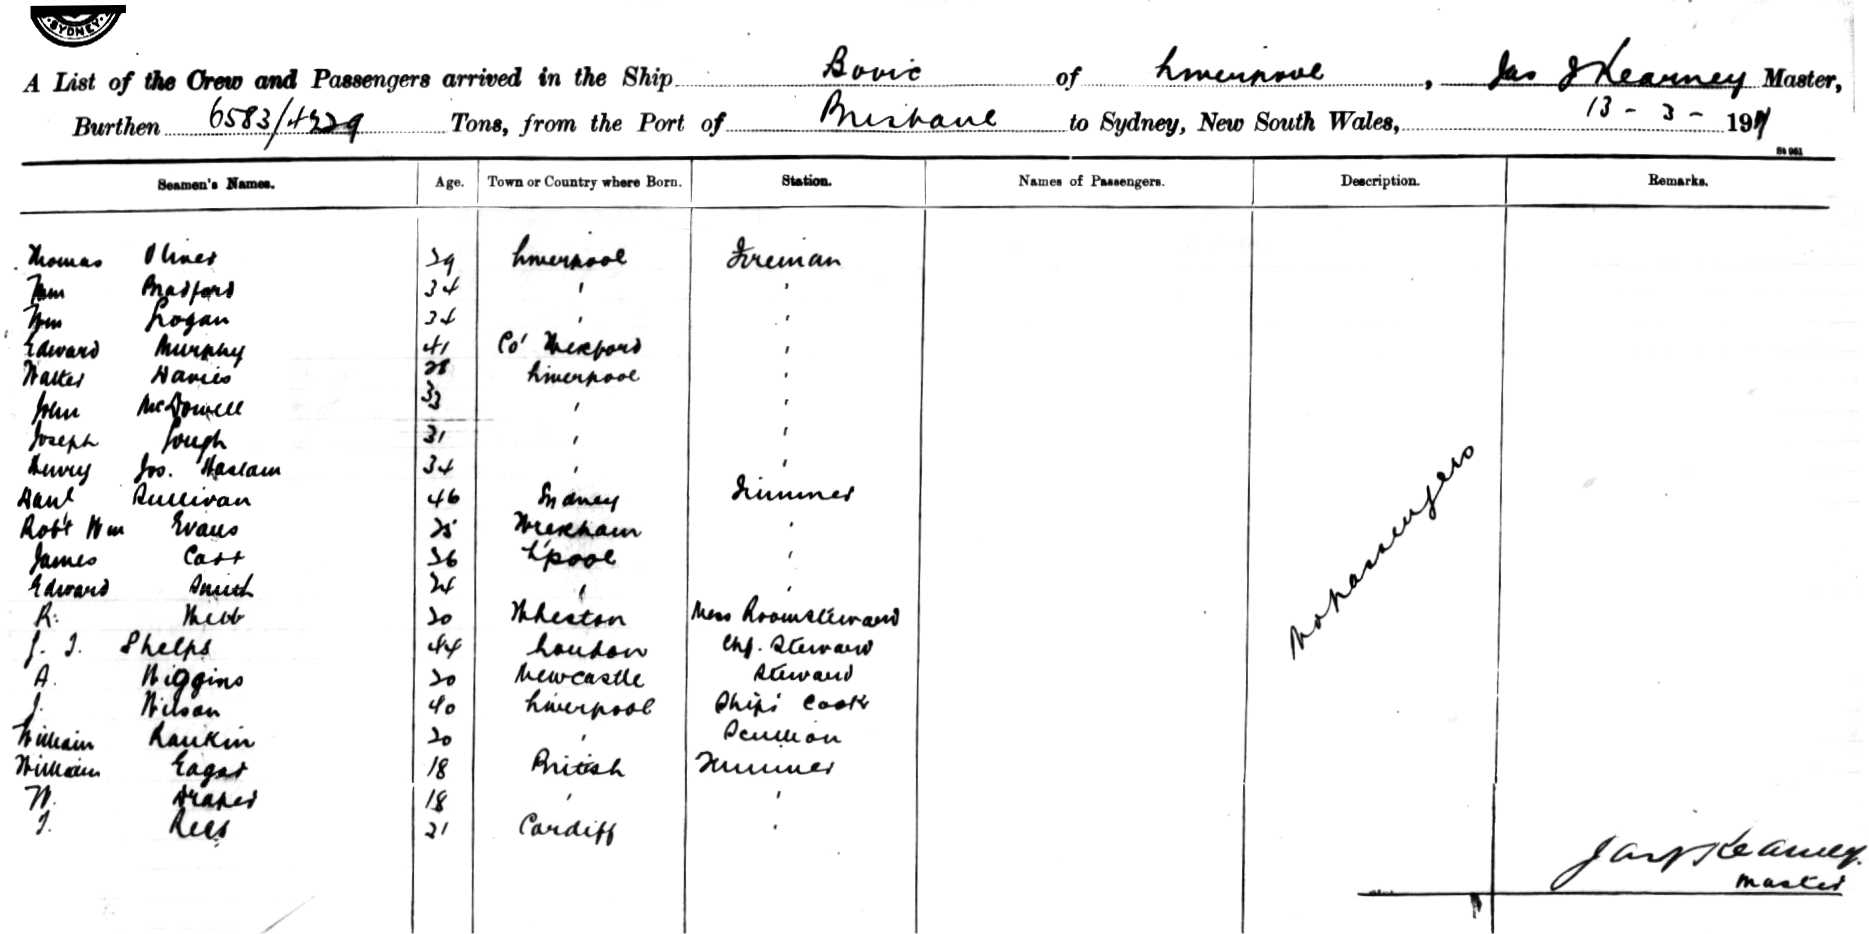 SYDNEY
A List of the Crew and Passengers arrived in the Ship Bovic of Liverpool, Jas J Kearney Master,
Burthen 6583/4229 Tons, from the Port of Brisbane to Sydney, New South Wales, 13 - 3 - 19
St 961
Seamen's Names. Age. Town or Country where Born. Station. Names of Passengers. Description. Remarks.
Thomas Oliver 29 Liverpool Fireman
Bradford 34 " "
Wm Logan 34 " "
Edward Murphy 41 Co' Wexford "
Walter Davies 28 Liverpool "
John McDowell 33 " "
Joseph Lough 31 " "
Henry Jos. Haslam 34 " "
Danl Sullivan 46 Sydney Trimmer
Robt Wm Evans 25 Wrexham "
James Carr 26 L'pool "
Edward Smith 24 " "
R. Webb 20 Wheston Mess Room Steward
J. T. Phelps 44 London Chf. Steward
A. Wiggins 20 Newcastle Steward
J. Wilson 40 Liverpool Ships' Cook
William Rankin 20 " Scullion
William Eagar 18 British Trimmer
W. Draper 18 " "
T. Rees 21 Cardiff "
No passengers
Jas J Kearney.
Master